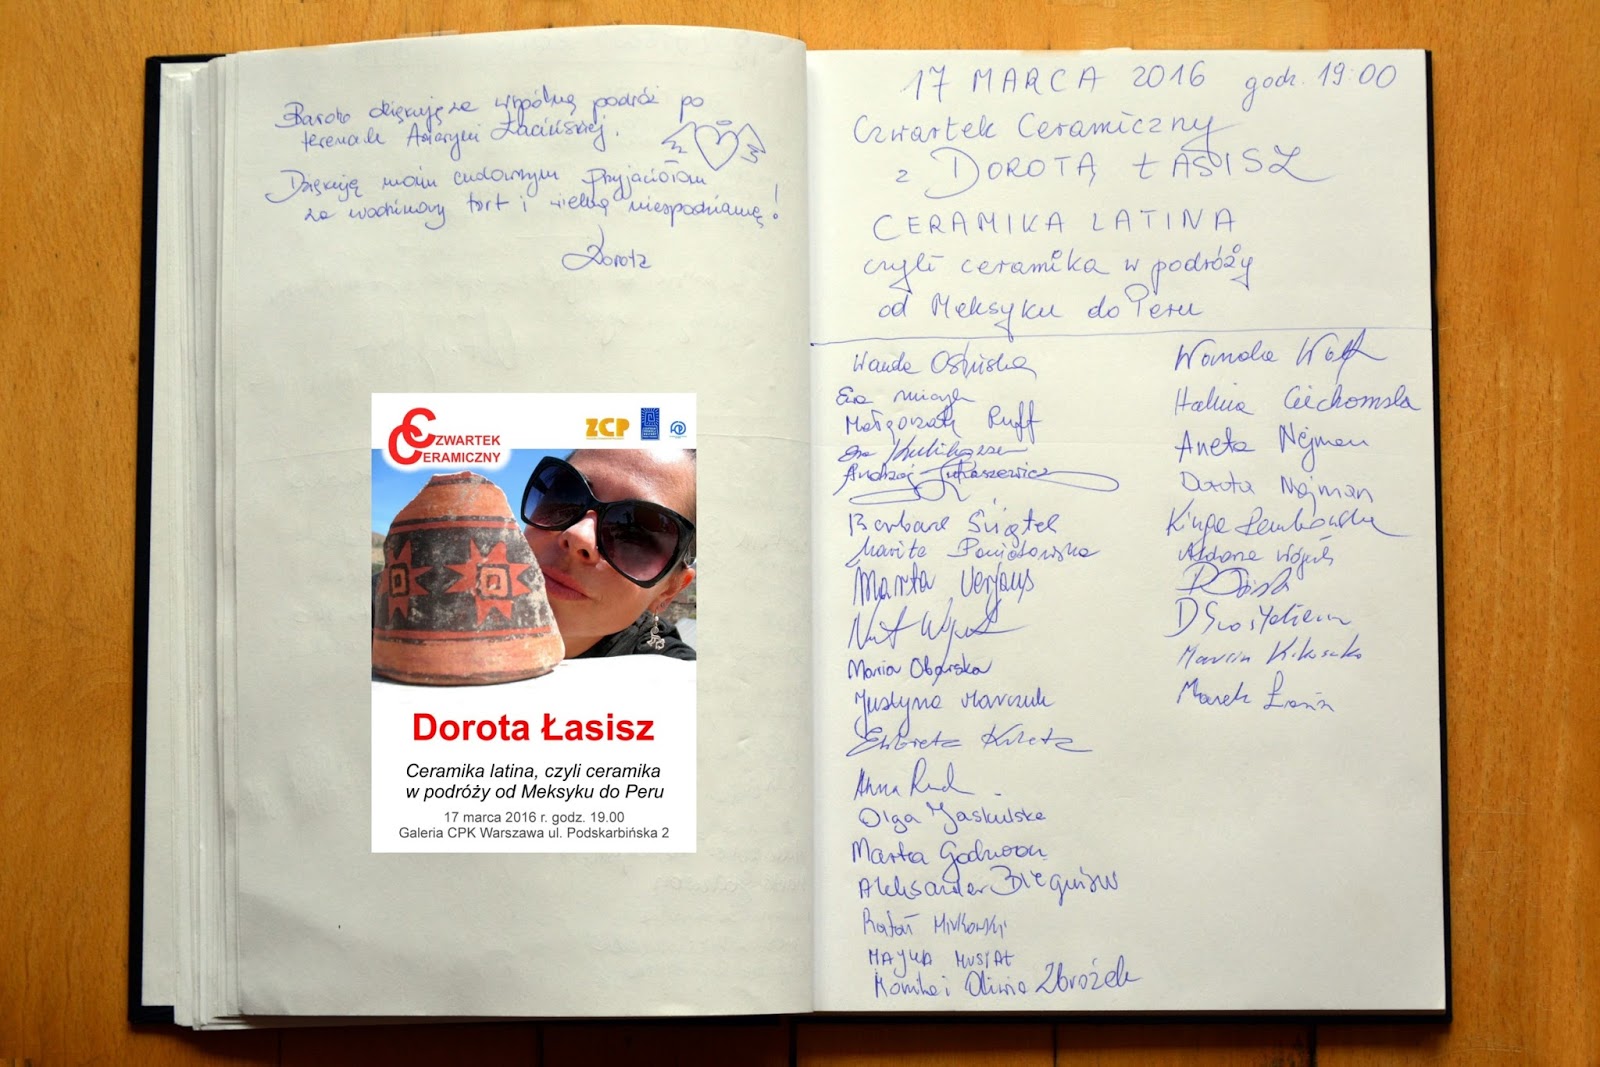 Bardzo dziękuję za wspólną podróż po
terenach Ameryki Łacińskiej.
Dziękuję moim cudownym Przyjaciołom
za urodzinowy tort i wielką niespodziankę!
Dorota
CZWARTEK
CERAMICZNY
ZCP
Dorota Łasisz
Ceramika latina, czyli ceramika
w podróży od Meksyku do Peru
17 marca 2016 r. godz. 19.00
Galeria CPK Warszawa ul. Podskarbińska 2
17 MARCA 2016 godz. 19:00
Czwartek Ceramiczny
z DOROTĄ ŁASISZ
CERAMIKA LATINA
czyli ceramika w podróży
od Meksyku do Peru
Wanda
Ewa
Małgorzata Ruff
Ewa
Andrzej Łukaszewicz
Barbara Świątek
Marita Poniatowska
Marta
Maria Obarska
Justyna Marczuk
Elżbieta
Anna
Olga Jaskulska
Marta
Aleksander
Rafał Mirkowski
MAJKA MUSIAŁ
Monika i Oliwia Zbrożek
Wanda Wolf
Halina Ciechomska
Aneta Nejman
Dorota Nejman
Kinga
Aldona
Marcin
Marek Łasisz